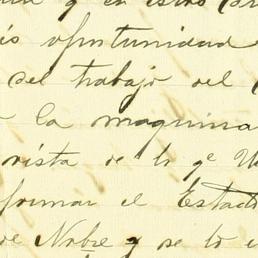 y en estos
oportunidad
del trabajo del
la maquina
vista de lo qe
formar el Estad
de Nobre y se lo